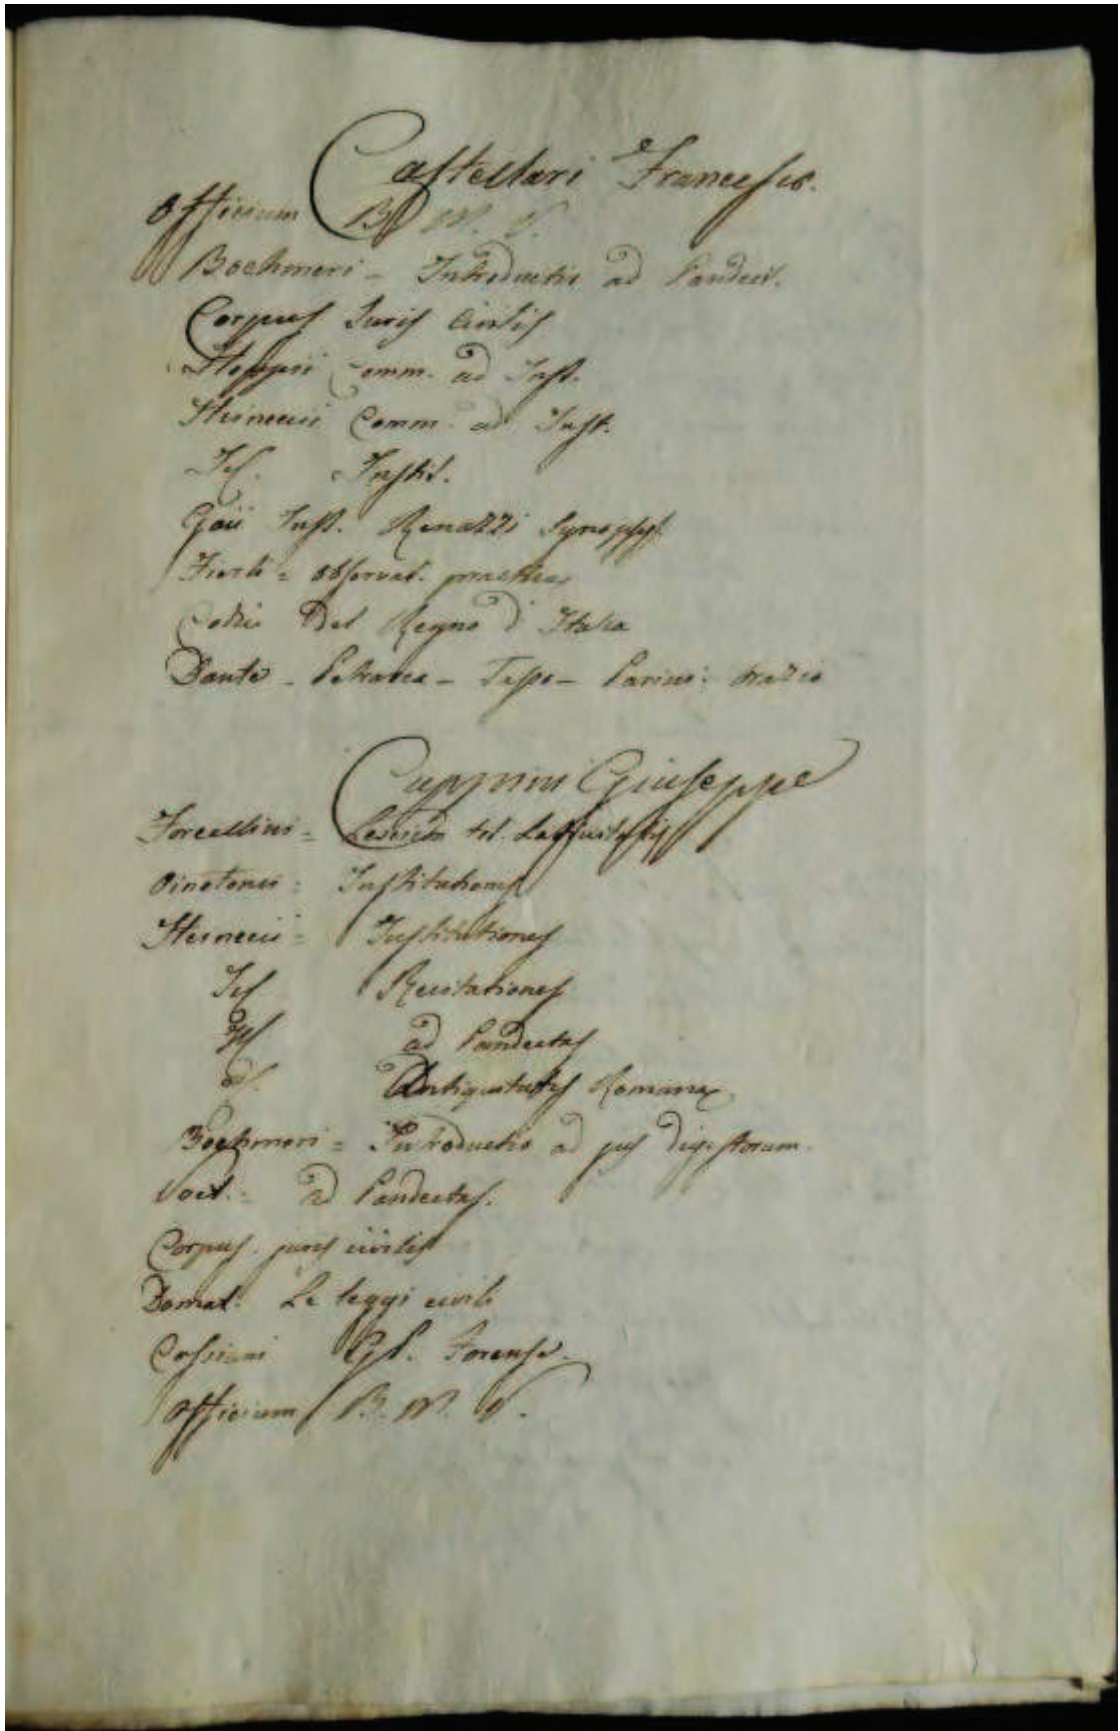 Castellari Francesco.
Officium B. M. V.
Boehmeri - Introductio ad Pandect.
Corpus Juris Civilis
Hoppii Comm. ad Inst.
Heineccii Comm. ad Inst.
Id. Instit.
Gaii Inst. Renazzi Synopsis
Fierli = observat. practicae
Codice Del Regno d'Italia
Dante - Petrarca - Tasso - Parini: Orazio
Cuppini Giuseppe
Forcellini = Lexicon tot. Latinitatis
Oinotomi = Institutiones
Heineccii = Institutiones
Id Recitationes
Id ad Pandectas
Id. Antiquitates Romanae
Boehmeri = Introductio ad jus digestorum.
Voet. = ad Pandectas.
Corpus juris civilis
Domat. Le leggi civili
Cassiani Forense.
Officium B. M. V.